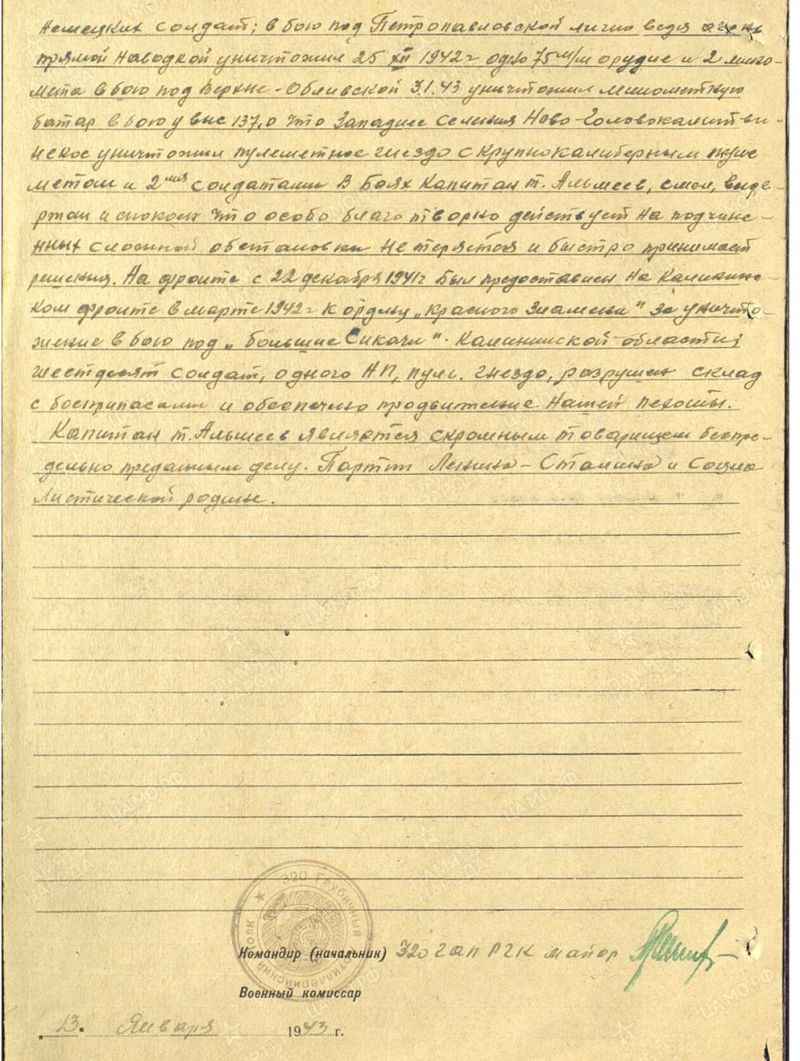 Немецких солдат; в бою под Петропавловской лично ведя огонь
прямой наводкой уничтожил 25 XII 1942 г одно 75 м/м орудие и 2 мино-
мета в бою под Верхне-Обливской 3.1.43 уничтожил минометную
батар в бою у выс 137,0 что Западнее селения Ново-
уничтожил пулеметное гнездо с крупнокалиберным пуле
метом и 2мя солдатами В боях Капитан т. Альшеев, смел, выде
ржан и спокоен что особо благотворно действует на подчине-
нных сложной обстановки не теряется и быстро принимает
решения. На фронте с 22 декабря 1941 г был предоставлен на Калининс-
ком фронте в марте 1942 г к ордену „Красного Знамени" за уничто-
жение в бою под „Большие Сикачи". Калининской области
шестдесят солдат, одного НП, пул. гнездо, разрушен склад
с боеприпасами и обеспечено продвижение нашей пехоты.
Капитан т. Альшеев является скромным товарищем беспре-
дельно преданным делу. Партии Ленина-Сталина и Социа
листической родине.
320 Гаубичный Артиллерийский полк
Командир (начальник) 320 гап РГК майор
Военный комиссар
„13" Января 1943 г.
ПАМЯТЬ НАРОДА
ЦАМО.РФ